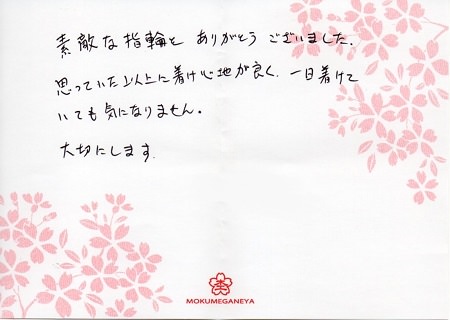 素敵な指輪を ありがとう ございました.
思っていた以上に着け心地が良く、一日着けて
いても気になりません。
大切にします.
MOKUMEGANEYA